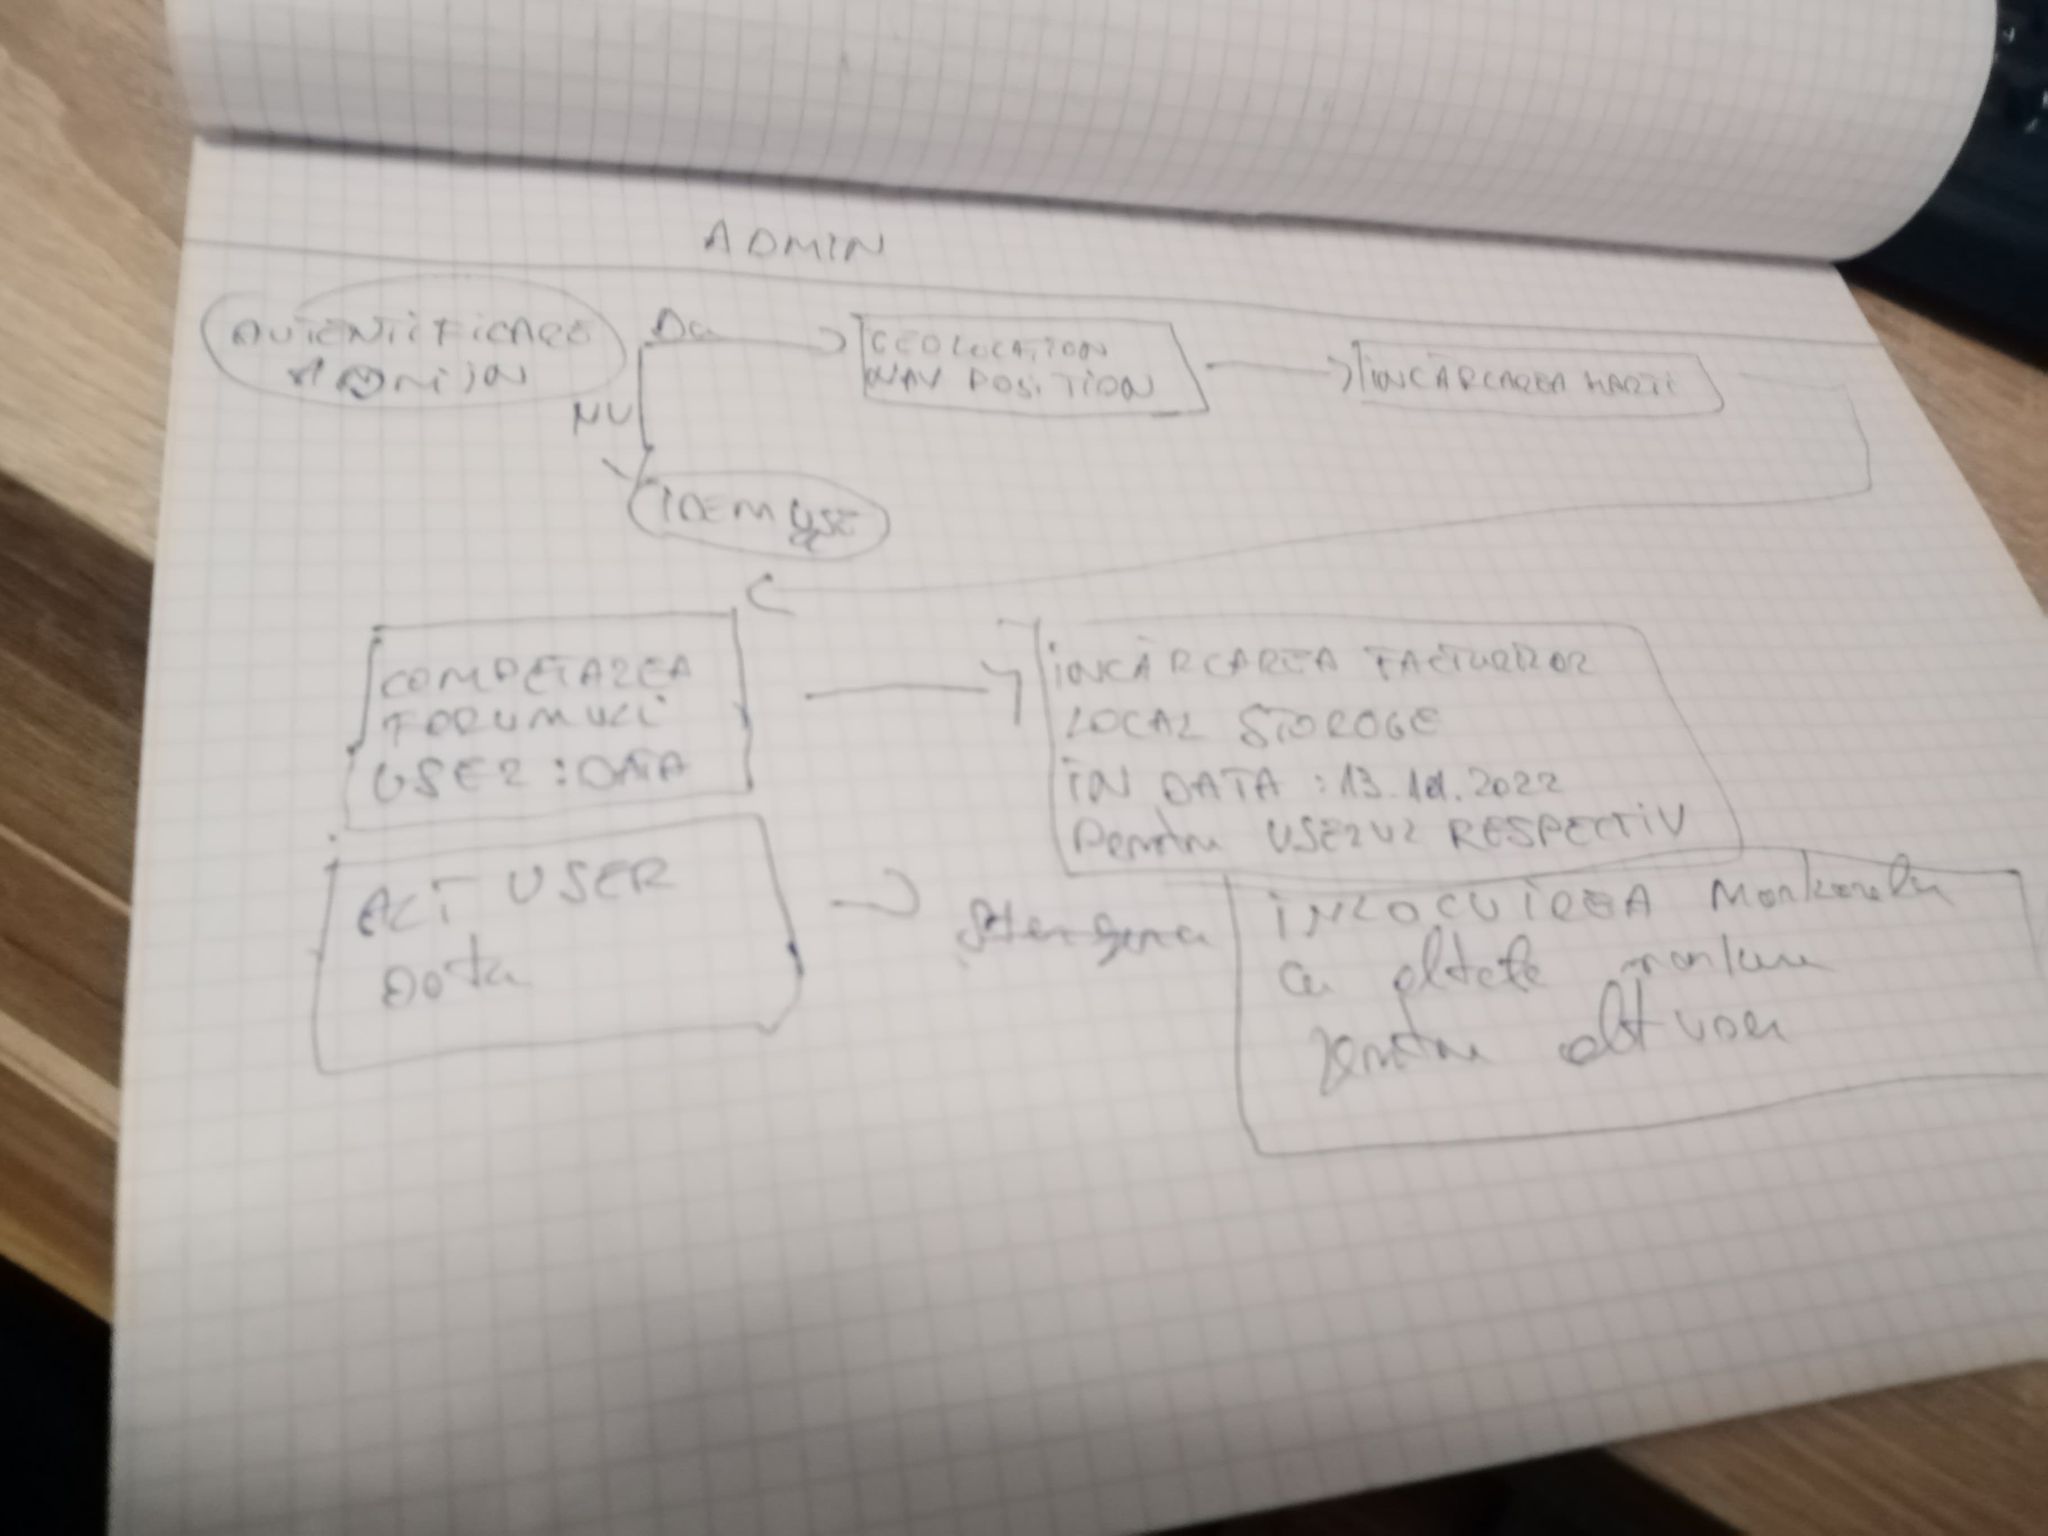 ADMIN
AUTENTIFICARE
ADMIN
Da
NU
GEOLOCATION
NAV POSITION
INCĂRCAREA HARTI
IDEM USE
COMPETAREA
FORUMULI
USER : DATA
INCĂRCAREA FACTURILOR
LOCAL STOROGE
IN DATA : 13.10.2022
Pentru USERUL RESPECTIV
ALT USER
Data
INLOCUIREA
cu altele
pentru alt user